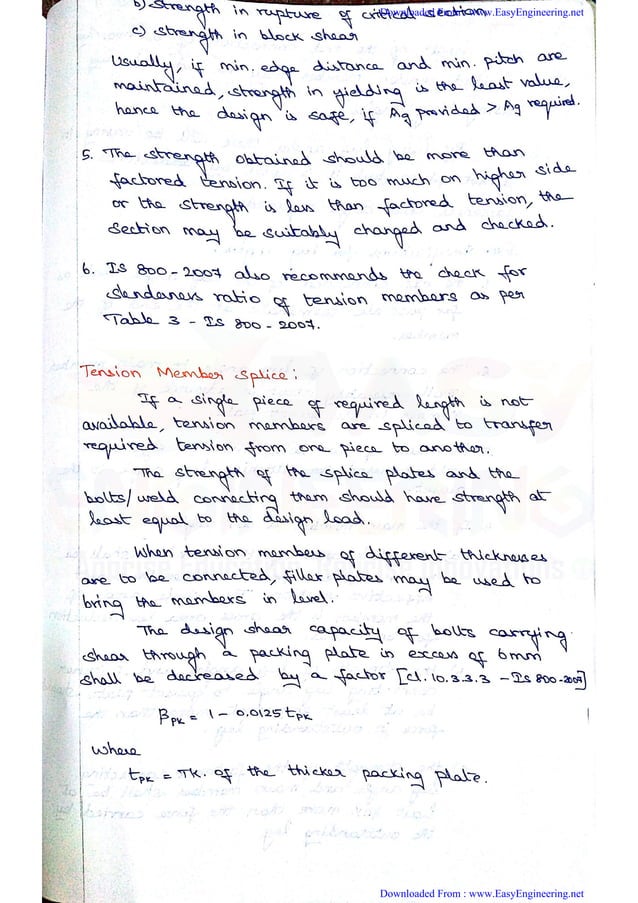 b) Strength in rupture of critical section
Downloaded From : www.EasyEngineering.net
c) strength in block shear
Usually, if min. edge distance and min. pitch are
maintained, strength in yielding is the least value,
hence the design is safe, if Ag provided > Ag required.
5. The strength obtained should be more than
factored tension. If it is too much on higher side
or the strength is less than factored tension, the
section may be suitably changed and checked.
6. IS 800-2007 also recommends the check for
slenderness ratio of tension members as per
Table 3 - IS 800-2007.
Tension Member Splice:
If a single piece of required length is not
available, tension members are spliced to transfer
required tension from one piece to another.
The strength of the splice plates and the
bolts/weld connecting them should have strength at
least equal to the design load.
When tension members of different thicknesses
are to be connected, filler plates may be used to
bring the members in level.
The design shear capacity of bolts carrying
shear through a packing plate in excess of 6mm
shall be decreased by a factor [cl. 10.3.3.3 - IS 800-2007]
βPK = 1 - 0.0125 tPK
where
tPK = TK. of the thicker packing plate.
Downloaded From : www.EasyEngineering.net